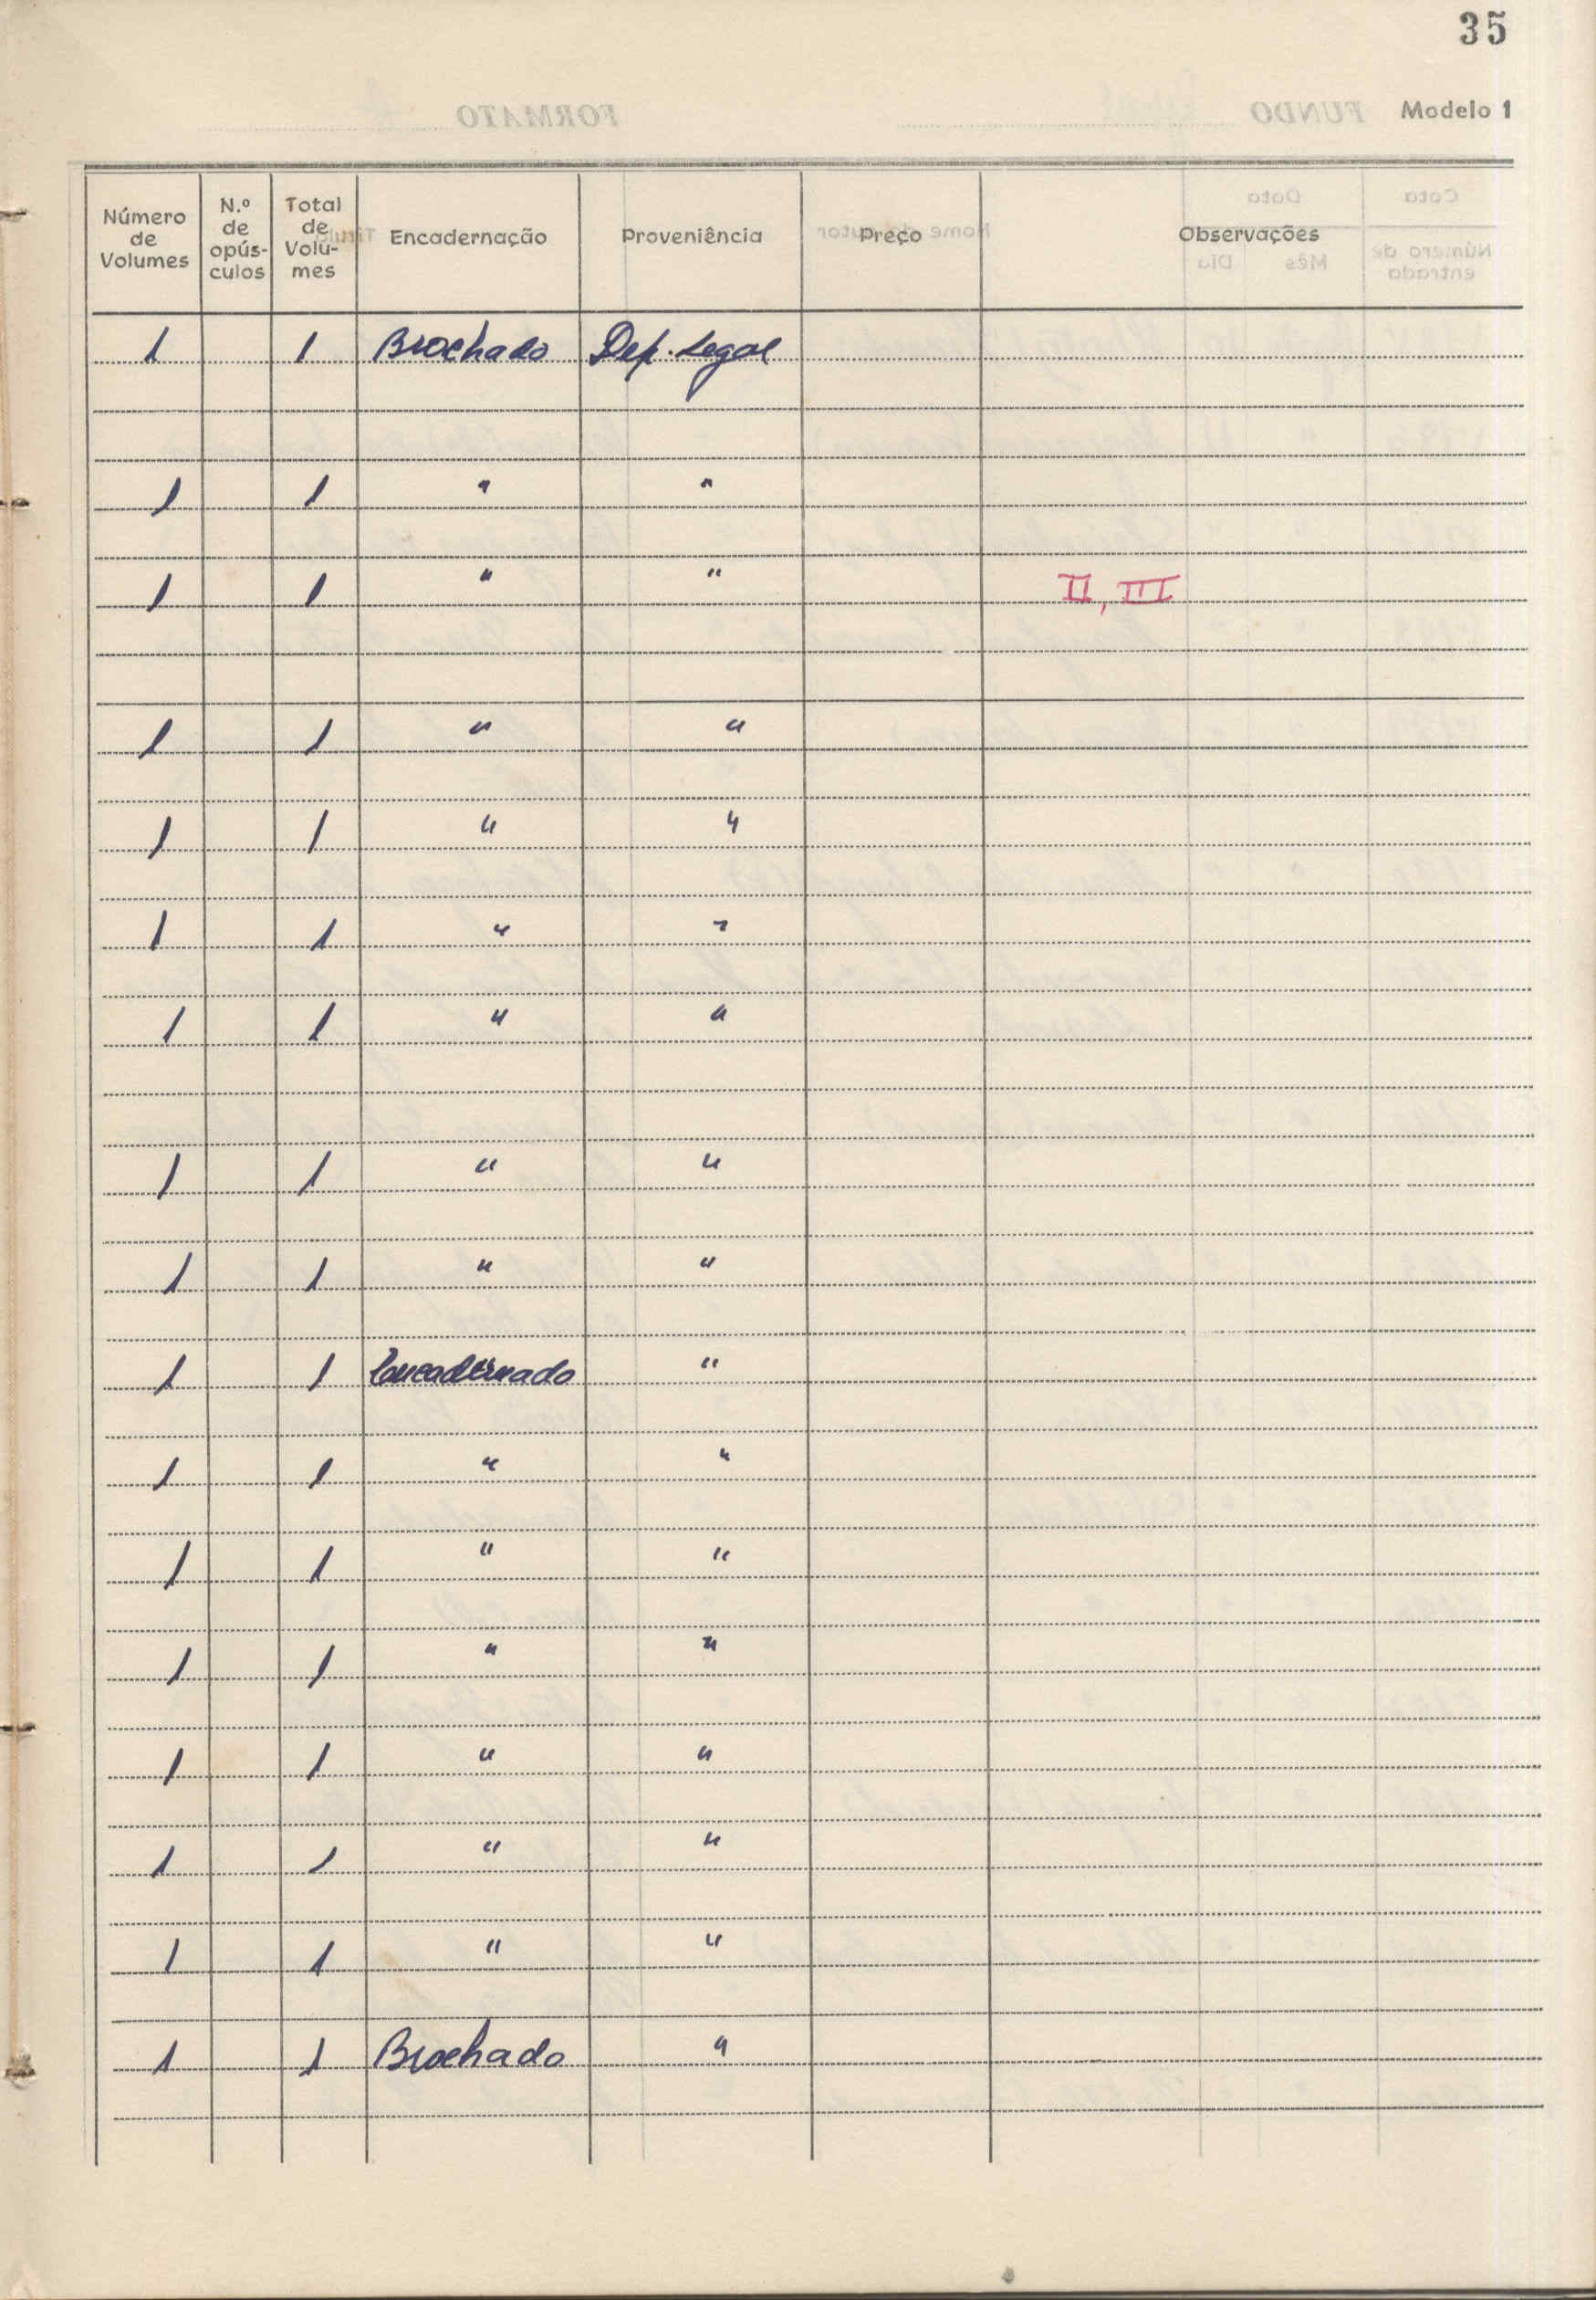 35
Modelo 1
Número de Volumes | N.º de opús-culos | Total de Volu-mes | Encadernação | Proveniência | Preço | Observações
1 | | 1 | Brochado | Dep. Legal
1 | | 1 | " | "
1 | | 1 | " | " | | II, III
1 | | 1 | " | "
1 | | 1 | " | "
1 | | 1 | " | "
1 | | 1 | " | "
1 | | 1 | " | "
1 | | 1 | " | "
1 | | 1 | Encadernado | "
1 | | 1 | " | "
1 | | 1 | " | "
1 | | 1 | " | "
1 | | 1 | " | "
1 | | 1 | " | "
1 | | 1 | " | "
1 | | 1 | Brochado | "